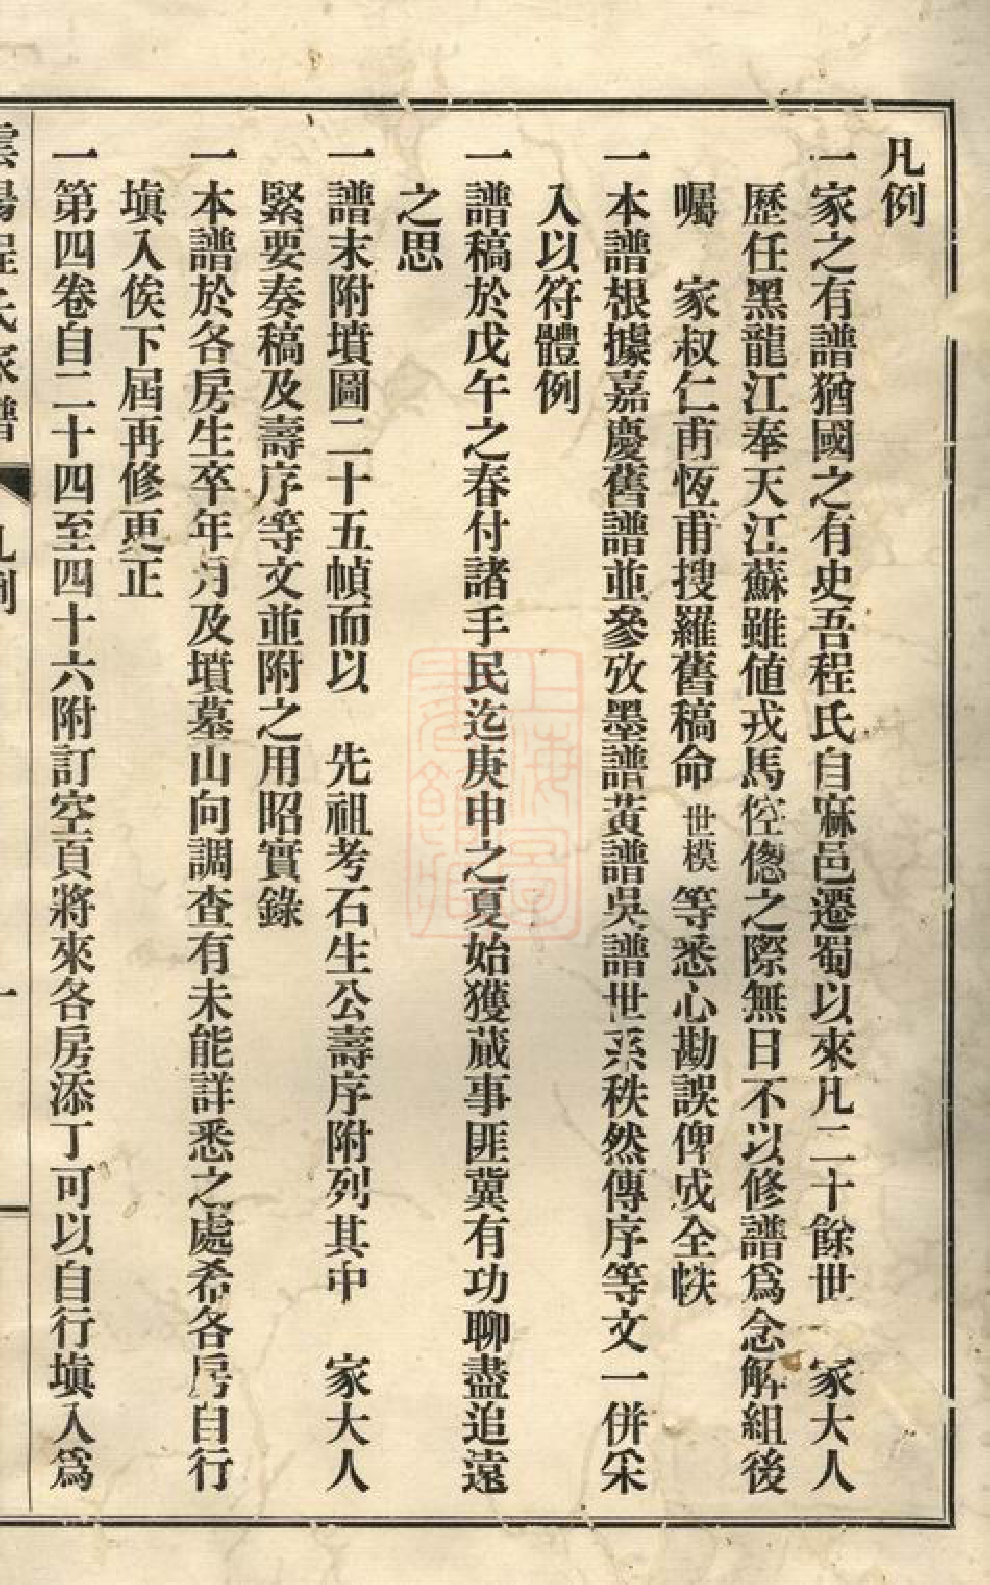 凡例
一家之有譜猶國之有史吾程氏自寐邑遷蜀以來凡二十餘世　家大人
歷任黑龍江奉天江蘇雖値戎馬倥傯之際無日不以修譜爲念解組後
囑　家叔仁甫恆甫搜羅舊稿命世模等悉心勘誤俾成全帙
一本譜根據嘉慶舊譜並參攷墨譜黃譜吳譜世系秩然傳序等文一併采
入以符體例
一譜稿於戊午之春付諸手民迄庚申之夏始獲蕆事匪冀有功聊盡追遠
之思
一譜末附墳圖二十五幀而以　先祖考石生公壽序附列其中　家大人
緊要奏稿及壽序等文並附之用昭實錄
一本譜於各房生卒年月及墳墓山向調查有未能詳悉之處希各房自行
塡入俟下屆再修更正
一第四卷自二十四至四十六附訂空頁將來各房添丁可以自行塡入爲
雲陽程氏家譜　凡例　一
上海圖書館藏